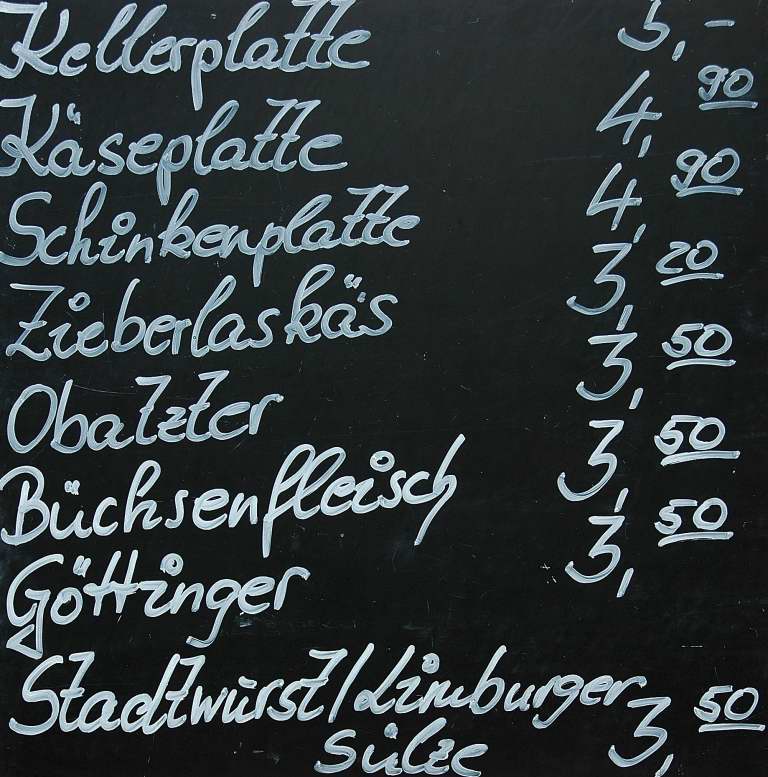 Kellerplatte 5,-
Käseplatte 4,90
Schinkenplatte 4,90
Zieberlaskäs 3,20
Obatzter 3,50
Büchsenfleisch 3,50
Göttinger 3,50
Stadtwurst/Limburger 3,50
Sülze